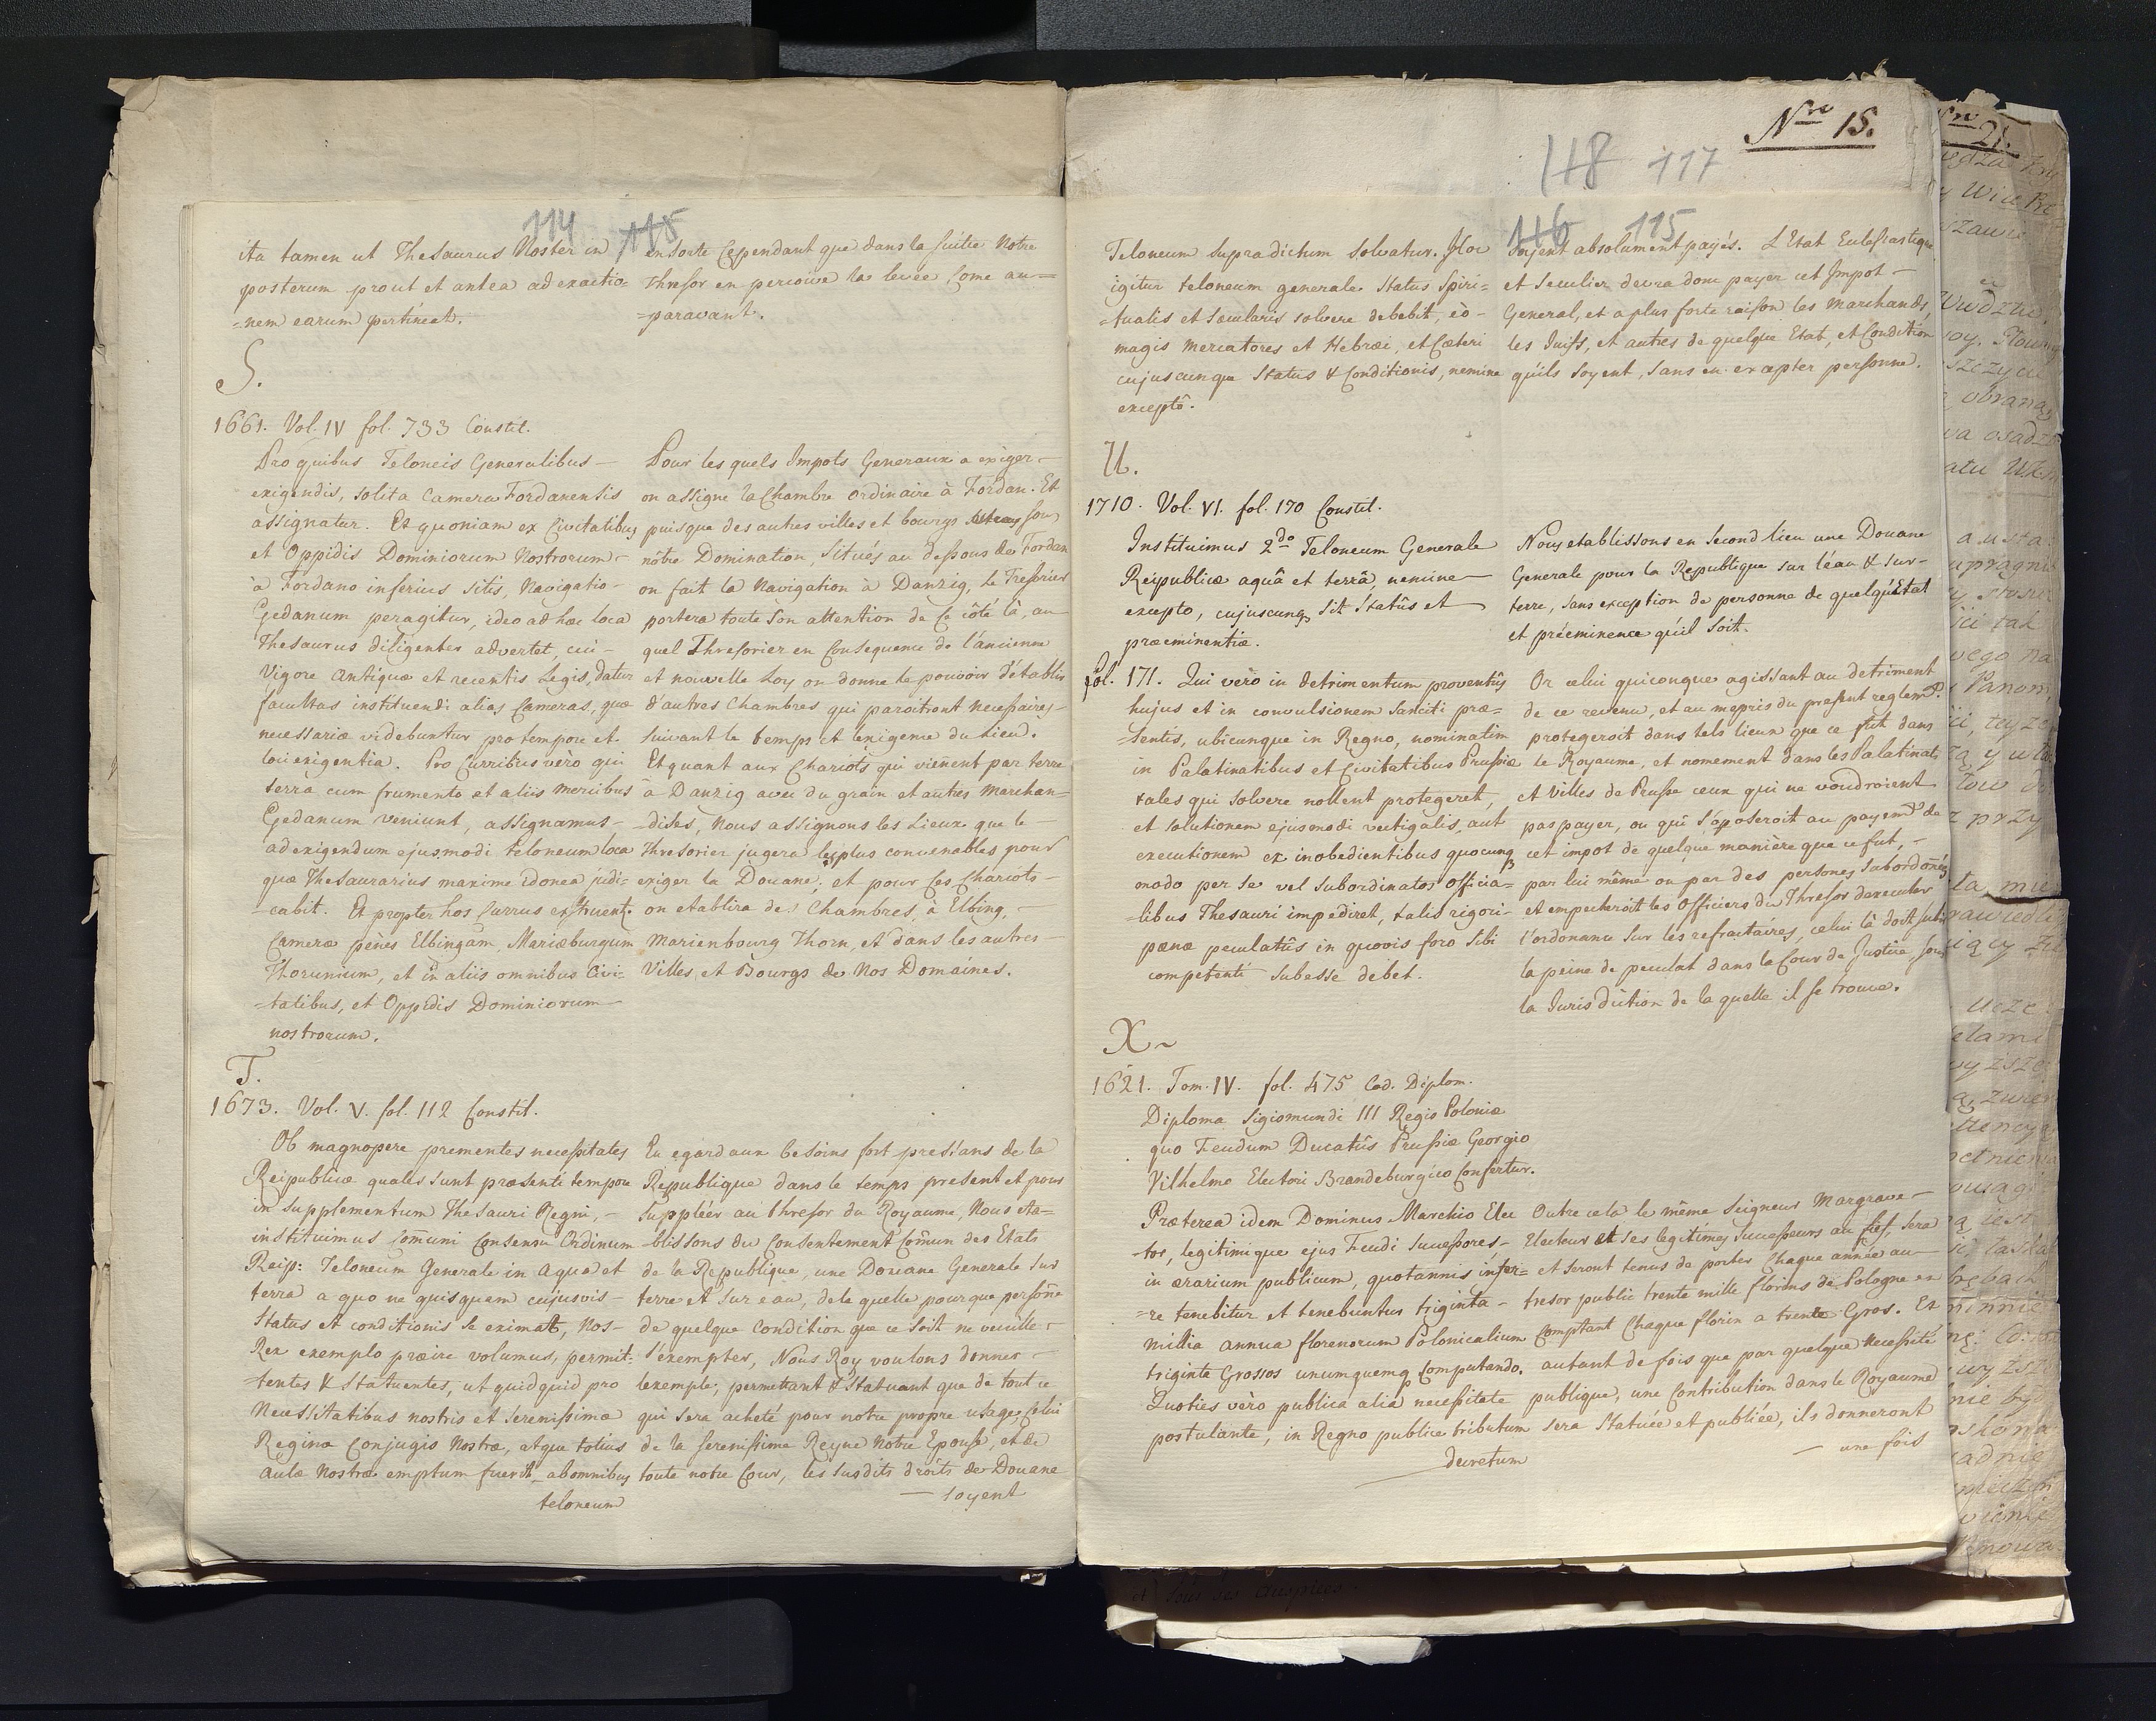 114 115
ita tamen ut Thesaurus Noster in
posterum prout et antea ad exactio=
=nem earum pertineat.
en sorte cependant que dans la suite Notre
Thresor en percoive la levée, come au=
=paravant.
S.
1661. Vol. IV fol. 733 Constit.
Pro quibus Teloneis Generalibus —
exigendis, solita Camera Fordanensis
assignatur. Et quoniam ex Civitatibus
et Oppidis Dominiorum Nostrorum —
à Fordano inferius sitis, Navigatio —
Gedanum peragitur, ideo ad hæc loca
Thesaurus diligenter advertet, cui —
Vigore Antiquæ et recentis Legis, datur
facultas instituendi alias Cameras, quæ
necessariæ videbuntur pro tempore et
loci exigentia. Pro Curribus verò qui
terra cum frumento et aliis mercibus
Gedanum veniunt, assignamus —
ad exigendum ejusmodi teloneum loca
quæ Thesaurarius maxime idonea judi=
=cabit. Et propter hos Currus exstruent.
Cameræ pènes Elbingam, Mariæburgum
Thorunium, et in aliis omnibus Civi=
=tatibus, et Oppidis Dominiorum —
nostrorum.
Pour les quels Impots Generaux a exiger —
on assigne la Chambre ordinaire à Fordan. Et
puisque des autres villes et bourgs sous
nôtre Domination, situés au dessous de Fordan
on fait la Navigation à Danzig, le Tresorier
portera toute son attention de ce côté là, au —
quel Thresorier en consequence de l'ancienne
et nouvelle Loy on donne le pouvoir d'établir
d'autres Chambres qui paroitront necessaires —
suivant le temps et l'exigence du Lieu.
Et quant aux Chariots qui vienent par terre
à Danzig avec du grain et autres Marchan=
=dises, Nous assignons les Lieux que le —
Thresorier jugera les plus convenables pour
exiger la Douane; et pour ces Chariots —
on etablira des Chambres, à Elbing, —
Marienbourg Thorn, et dans les autres —
Villes, et Bourgs de Nos Domaines.
T.
1673. Vol. V. fol. 112 Constit.
Ob magnopere prementes necessitates
Reipublicæ quales sunt præsenti tempore
in supplementum Thesauri Regni, —
instituimus comuni consensu Ordinum
Reip: Teloneum Generale in aqua et
terra a quo ne quisquam cujusvis —
status et conditionis se eximat, Nos —
Rex exemplo præire volumus, permit=
=tentes & statuentes, ut quidquid pro
Necessitatibus nostris et Serenissimæ
Reginæ Conjugis Nostræ, atque totius
aulæ Nostræ emptum fuerit, ab omnibus
teloneum
En egard aux besoins fort pressans de la
Republique dans le temps present et pour
suppléer au thresor du Royaume, Nous eta=
=blissons du Consentement comun des Etats
de la Republique, une Douane Generale sur
terre et sur eau, de la quelle pour que persone
de quelque condition que ce soit ne veuille —
s'exempter, Nous Roy voulons donner —
l'exemple; permettant & statuant que de tout ce
qui sera acheté pour notre propre usage, celui
de la serenissime Reyne Notre Epouse, et de
toute notre Cour, les susdits droits de Douane
— soyent
Nro 15.
118 117
116 115
Teloneum supradictum solvatur. Hoc
igitur teloneum generale Status Spiri=
=tualis et Sæcularis solvere debebit, eò —
magis Mercatores et Hebræi, et Cæteri
cujuscunque Status & Conditionis, nemine
exceptô.
Soyent absolument payés. L'Etat Eclesiastique
et Seculier devra donc payer cet Impot —
General, et a plus forte raison les Marchands,
les Juifs, et autres de quelque Etat, et Condition
qu'ils soyent, sans en excepter personne.
U.
1710. Vol. VI. fol. 170 Constit.
Instituimus 2do Teloneum Generale
Reipublicæ aquâ et terrâ, nemine —
excepto, cujuscunq sit Statûs et
præeminentiæ.
Nous etablissons en second lieu une Douane
Generale pour la Republique sur l'éau & sur —
terre, sans exception de personne de quelqu'Etat
et préeminence qu'il soit.
fol. 171. Qui verò in detrimentum proventûs
hujus et in convulsionem Sanciti præ=
=sentis, ubicunque in Regno, nominatim
in Palatinatibus et Civitatibus Prussiæ
tales qui solvere nollent protegeret,
et solutionem ejusmodi vectigalis, aut
executionem ex inobedientibus quocunq
modo per se vel subordinatos officia=
=libus Thesauri impediret, talis rigori —
pœnæ peculatûs in quovis foro sibi
competenti subesse debet.
Or celui quiconque agissant au detriment
de ce revenu, et au mepris du present reglemt.
protegeroit dans tels lieux que ce fut dans
le Royaume, et nomement dans les Palatinats
et Villes de Prusse ceux qui ne voudroient
pas payer, ou qui s'oposeroit au payemt de
cet impot de quelque manière que ce fut, —
par lui même ou par des persones subordonés
et empecheroit les Officiers du Thresor d'executer
l'ordonance sur les refractaires, celui là doit subir
la peine de peculat dans la Cour de Justice, sous
la Jurisdiction de la quelle il se trouve.
X ~
1621. Tom. IV. fol. 475 Cod. Diplom.
Diploma Sigismundi III Regis Poloniæ
quo Feudum Ducatûs Prussiæ Georgio
Vilhelmo Electori Brandeburgico Confertur.
Præterea idem Dominus Marchio Elec
=tor, legitimique ejus Feudi Successores —
in ærarium publicum, quotannis infer=
=re tenebitur et tenebuntur triginta —
millia annua florenorum Polonicalium
triginta Grossos unumquemq computando.
Quoties verò publica alia necessitate
postulante, in Regno publice tributum
decretum
Outre cela le même Seigneur Margrave —
Electeur et ses legitimes Successeurs au fief, sera
et seront tenus de porter chaque année au —
tresor public trente mille florins de Pologne en
comptant chaque florin a trente Gros. Et
autant de fois que par quelque Necessité
publique, une Contribution dans le Royaume
sera statuée et publiée, ils donneront
— une fois